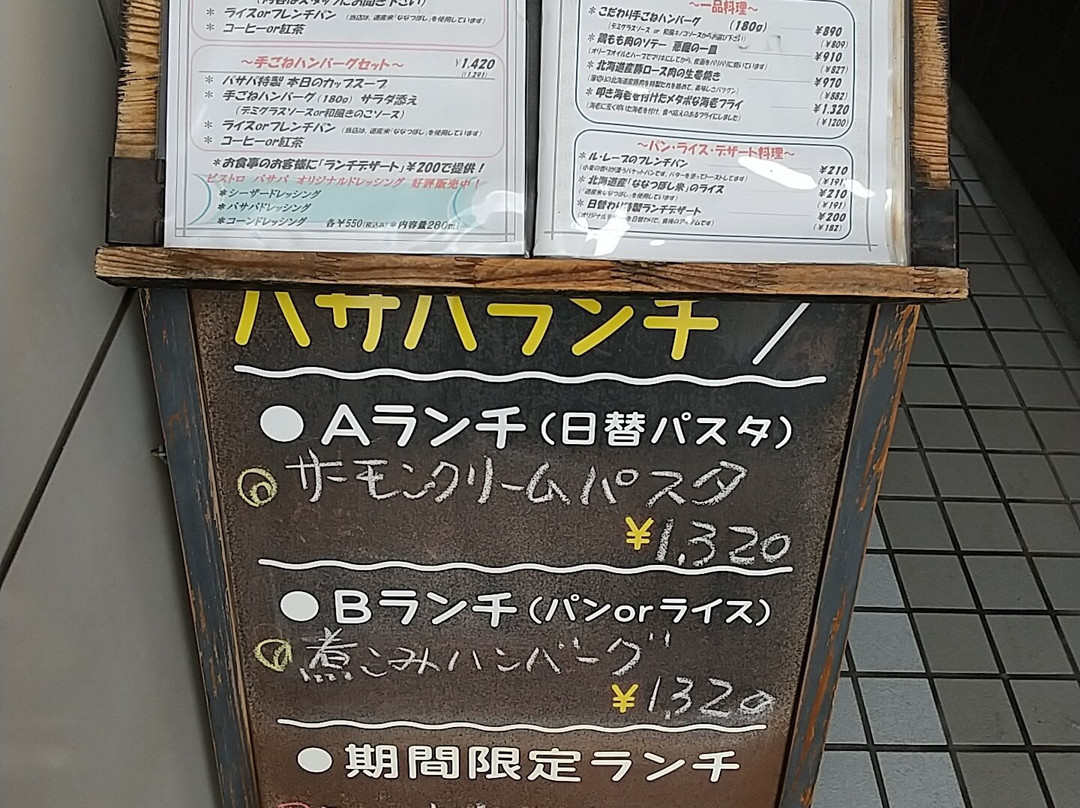 ＊ライスorフレンチパン（当店は、道産米「ななつぼし」を使用しています）
＊コーヒーor紅茶
～手ごねハンバーグセット～ ¥1,420
(1,291)
＊パサパ特製 本日のカップスープ
＊手ごねハンバーグ(180g) サラダ添え
（デミグラスソースor和風きのこソース）
＊ライスorフレンチパン（当店は、道産米「ななつぼし」を使用しています）
＊コーヒーor紅茶
＊お食事のお客様に「ランチデザート」¥200で提供！
ビストロ パサパ オリジナルドレッシング 好評販売中！
＊シーザードレッシング
＊パサパドレッシング
＊コーンドレッシング 各¥550(税込み)※内容量280ml
～一品料理～
＊こだわり手ごねハンバーグ (180g) ¥890
(¥809)
＊鶏もも肉のソテー 悪魔の一皿 ¥910
(¥827)
＊北海道産豚ロース肉の生姜焼き ¥970
(¥882)
＊叩き海老を付けたメタボな海老フライ ¥1,320
(¥1200)
～パン・ライス・デザート料理～
＊ル・レーブのフレンチパン ¥210
(¥191)
＊北海道産「ななつぼし米」のライス ¥210
(¥191)
＊日替わり特製ランチデザート ¥200
(¥182)
パサパランチ
●Aランチ（日替パスタ）
サーモンクリームパスタ
¥1,320
●Bランチ（パンorライス）
煮こみハンバーグ
¥1,320
●期間限定ランチ